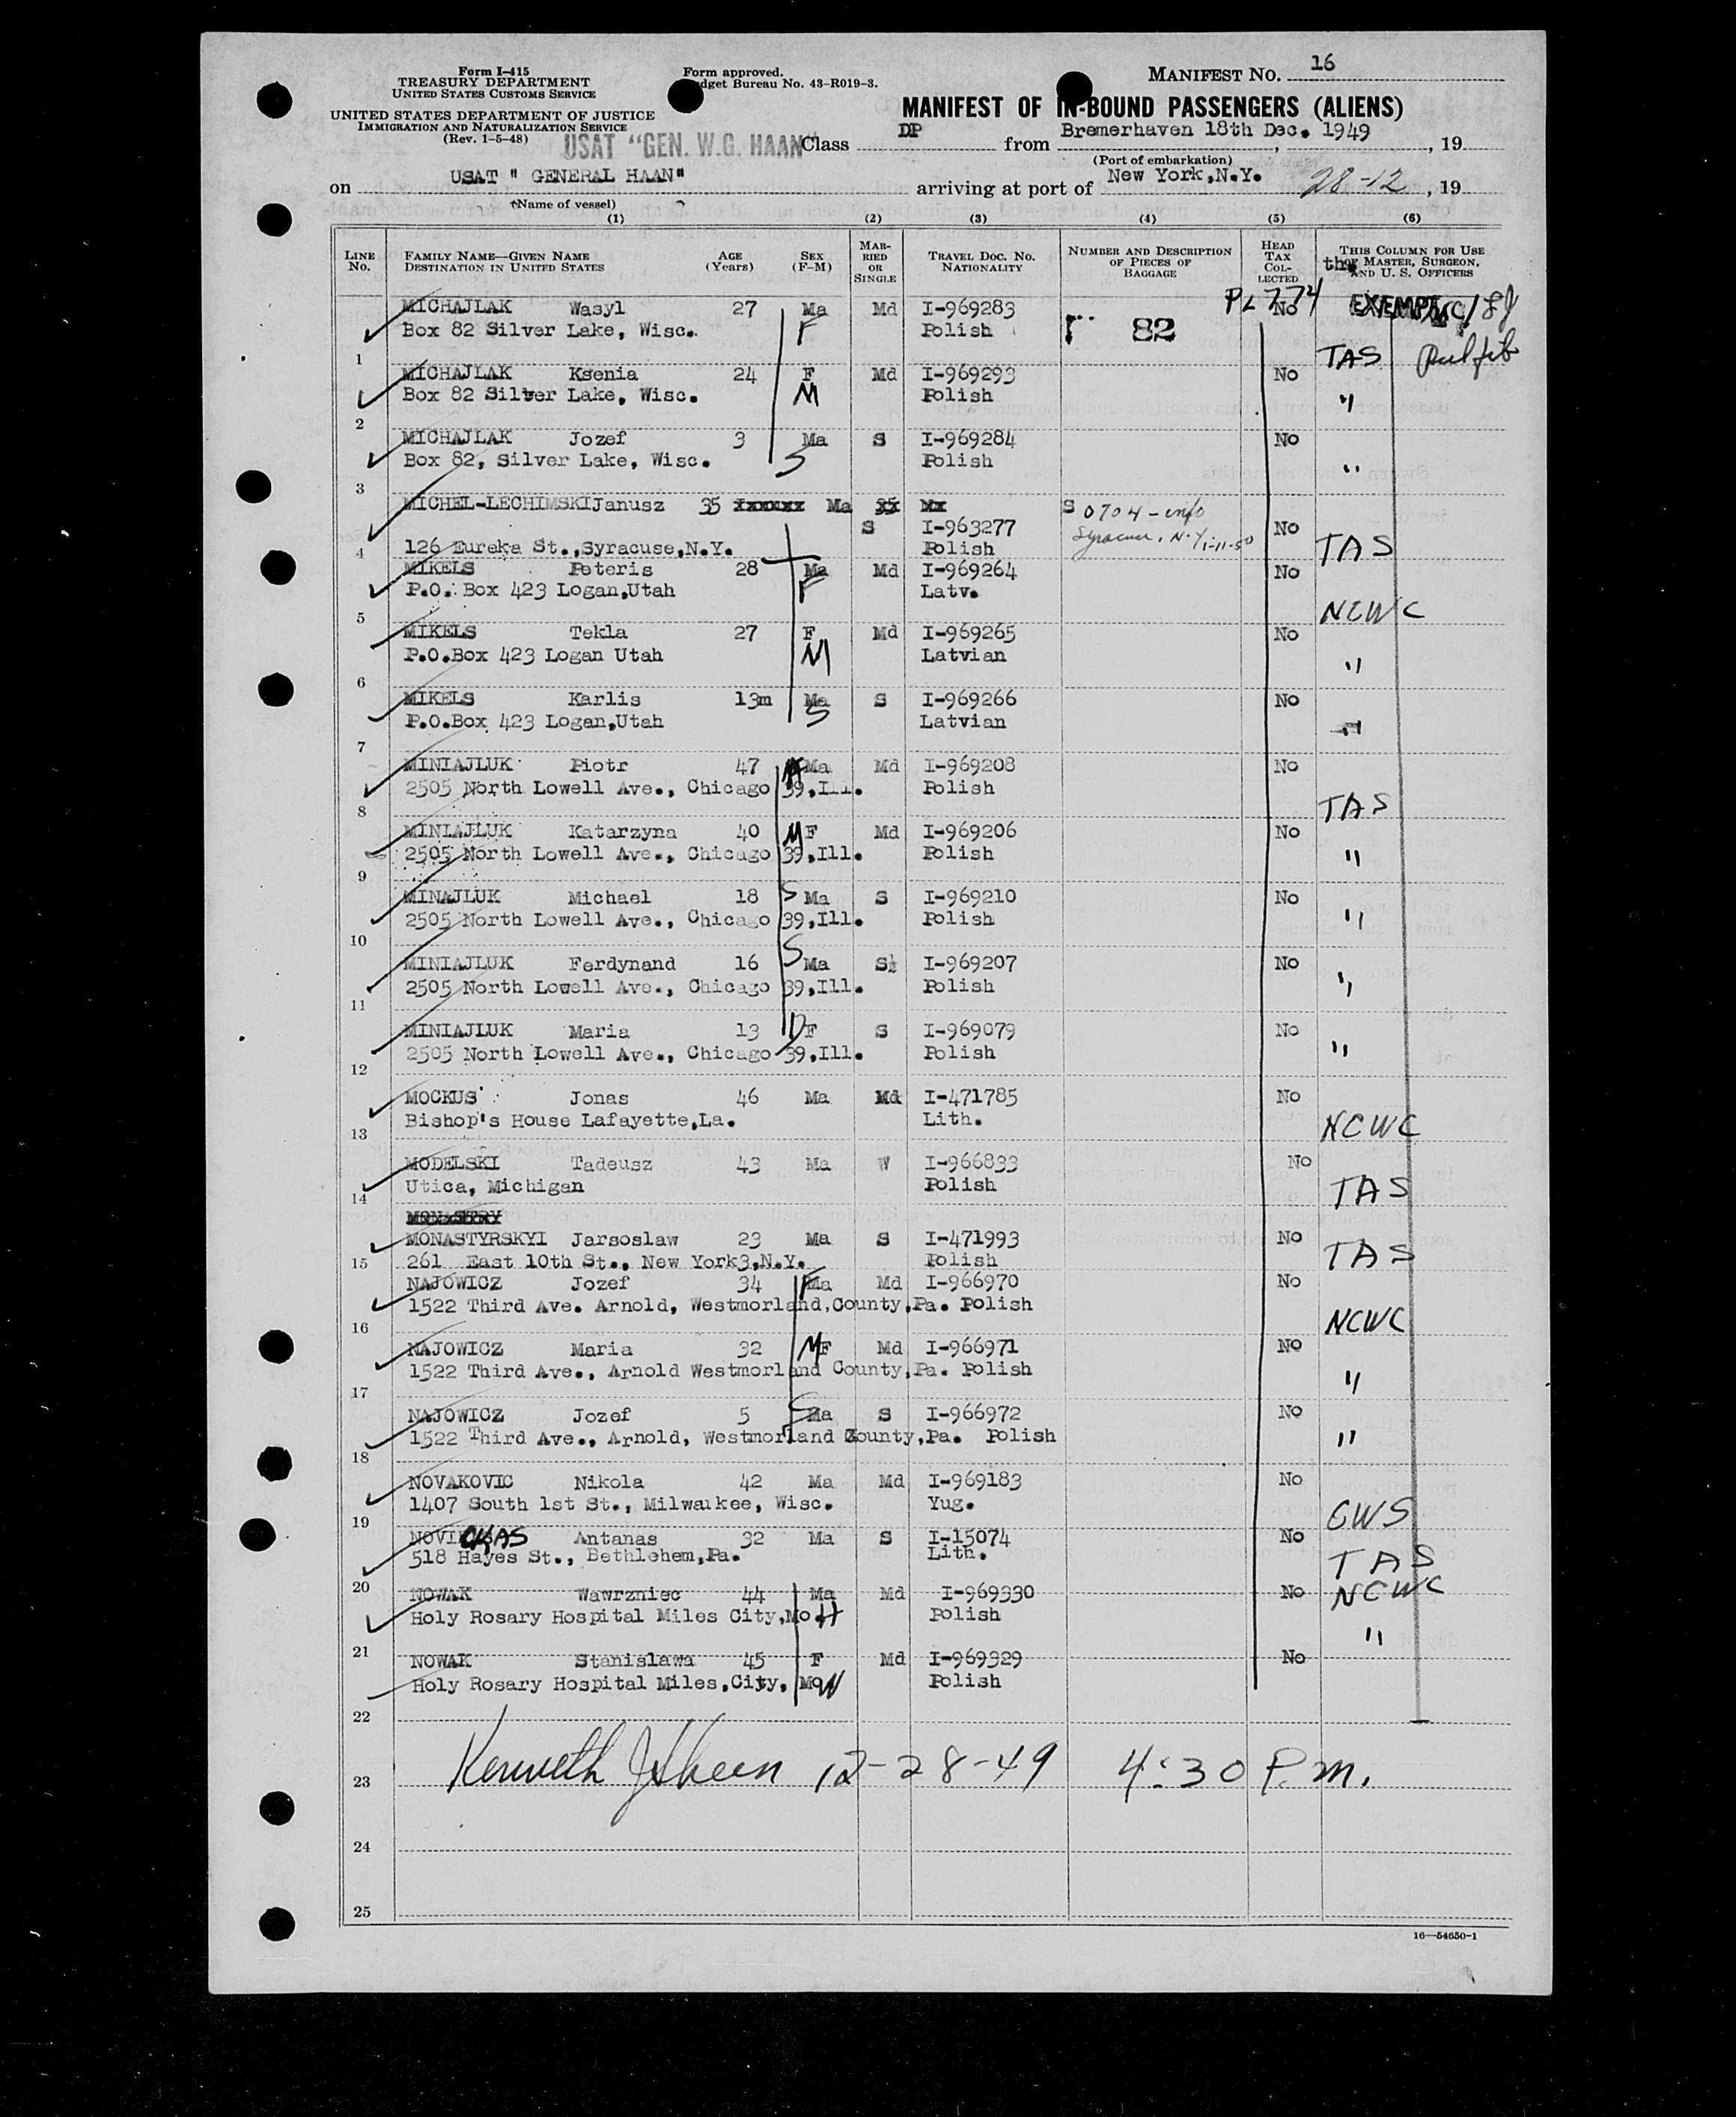 Form I-415
TREASURY DEPARTMENT
UNITED STATES CUSTOMS SERVICE
UNITED STATES DEPARTMENT OF JUSTICE
IMMIGRATION AND NATURALIZATION SERVICE
(Rev. 1-5-48)
Form approved.
dget Bureau No. 43-R019-3.
MANIFEST NO. 16
MANIFEST OF IN-BOUND PASSENGERS (ALIENS)
USAT "GEN. W.G. HAAN"
Class DP from Bremerhaven 18th Dec. 1949, 19
(Port of embarkation)
on USAT " GENERAL HAAN" arriving at port of New York,N.Y. 28-12, 19
(Name of vessel)
(1) (2) (3) (4) (5) (6)
LINE No. FAMILY NAME—GIVEN NAME DESTINATION IN UNITED STATES AGE (Years) SEX (F-M) MARRIED OR SINGLE TRAVEL DOC. NO. NATIONALITY NUMBER AND DESCRIPTION OF PIECES OF BAGGAGE HEAD TAX COLLECTED THIS COLUMN FOR USE OF MASTER, SURGEON, AND U. S. OFFICERS
the
PL 774 EXEMPT
MICHAJLAK Wasyl 27 Ma Md I-969283 No
Box 82 Silver Lake, Wisc. F Polish 82
1 TAS
MICHAJLAK Ksenia 24 F Md I-969293 No
Box 82 Silver Lake, Wisc. M Polish "
2
MICHAJLAK Jozef 3 Ma S I-969284 No
Box 82, Silver Lake, Wisc. S Polish "
3
MICHEL-LECHIMSKI Janusz 35 Ixxxxxx Ma 35 Mx S 0704-info
S I-963277 Syracuse, N.Y. 1-11-50 No
4 126 Eureka St.,Syracuse,N.Y. Polish TAS
MIKELS Peteris 28 Ma Md I-969264 No
P.O. Box 423 Logan,Utah F Latv.
5 NCWC
MIKELS Tekla 27 F Md I-969265 No
P.O.Box 423 Logan Utah M Latvian "
6
MIKELS Karlis 13m Ma S I-969266 No
P.O.Box 423 Logan,Utah S Latvian "
7
MINIAJLUK Piotr 47 Ma Md I-969208 No
2505 North Lowell Ave., Chicago 39,Ill. Polish
8 TAS
MINIAJLUK Katarzyna 40 M F Md I-969206 No
2505 North Lowell Ave., Chicago 39,Ill. Polish "
9
MINAJLUK Michael 18 S Ma S I-969210 No
2505 North Lowell Ave., Chicago 39,Ill. Polish "
10
MINIAJLUK Ferdynand 16 S Ma S I-969207 No
2505 North Lowell Ave., Chicago 39,Ill. Polish "
11
MINIAJLUK Maria 13 D F S I-969079 No
2505 North Lowell Ave., Chicago 39,Ill. Polish "
12
MOCKUS Jonas 46 Ma Md I-471785 No
Bishop's House Lafayette,La. Lith. NCWC
13
MODELSKI Tadeusz 43 Ma W I-966833 No
Utica, Michigan Polish TAS
14
MONASTRY
MONASTYRSKYI Jarsoslaw 23 Ma S I-471993 No
15 261 East 10th St., New York3,N.Y. Polish TAS
NAJOWICZ Jozef 34 F Ma Md I-966970 No
1522 Third Ave. Arnold, Westmorland,County,Pa. Polish
16 NCWC
NAJOWICZ Maria 32 M F Md I-966971 No
1522 Third Ave., Arnold Westmorland County,Pa. Polish "
17
NAJOWICZ Jozef 5 S Ma S I-966972 No
1522 Third Ave., Arnold, Westmorland County,Pa. Polish "
18
NOVAKOVIC Nikola 42 Ma Md I-969183 No
1407 South 1st St., Milwaukee, Wisc. Yug. CWS
19
NOVICKAS Antanas 32 Ma S I-15074 No
518 Hayes St., Bethlehem,Pa. Lith. TAS
20
NOWAK Wawrzniec 44 Ma Md I-969330 No NCWC
Holy Rosary Hospital Miles City,Mo H Polish "
21
NOWAK Stanislawa 45 F Md I-969329 No
Holy Rosary Hospital Miles,City, Mo W Polish
22
23 Kenneth J Skeen 12-28-49 4:30 P.m.
24
25
16—54650-1